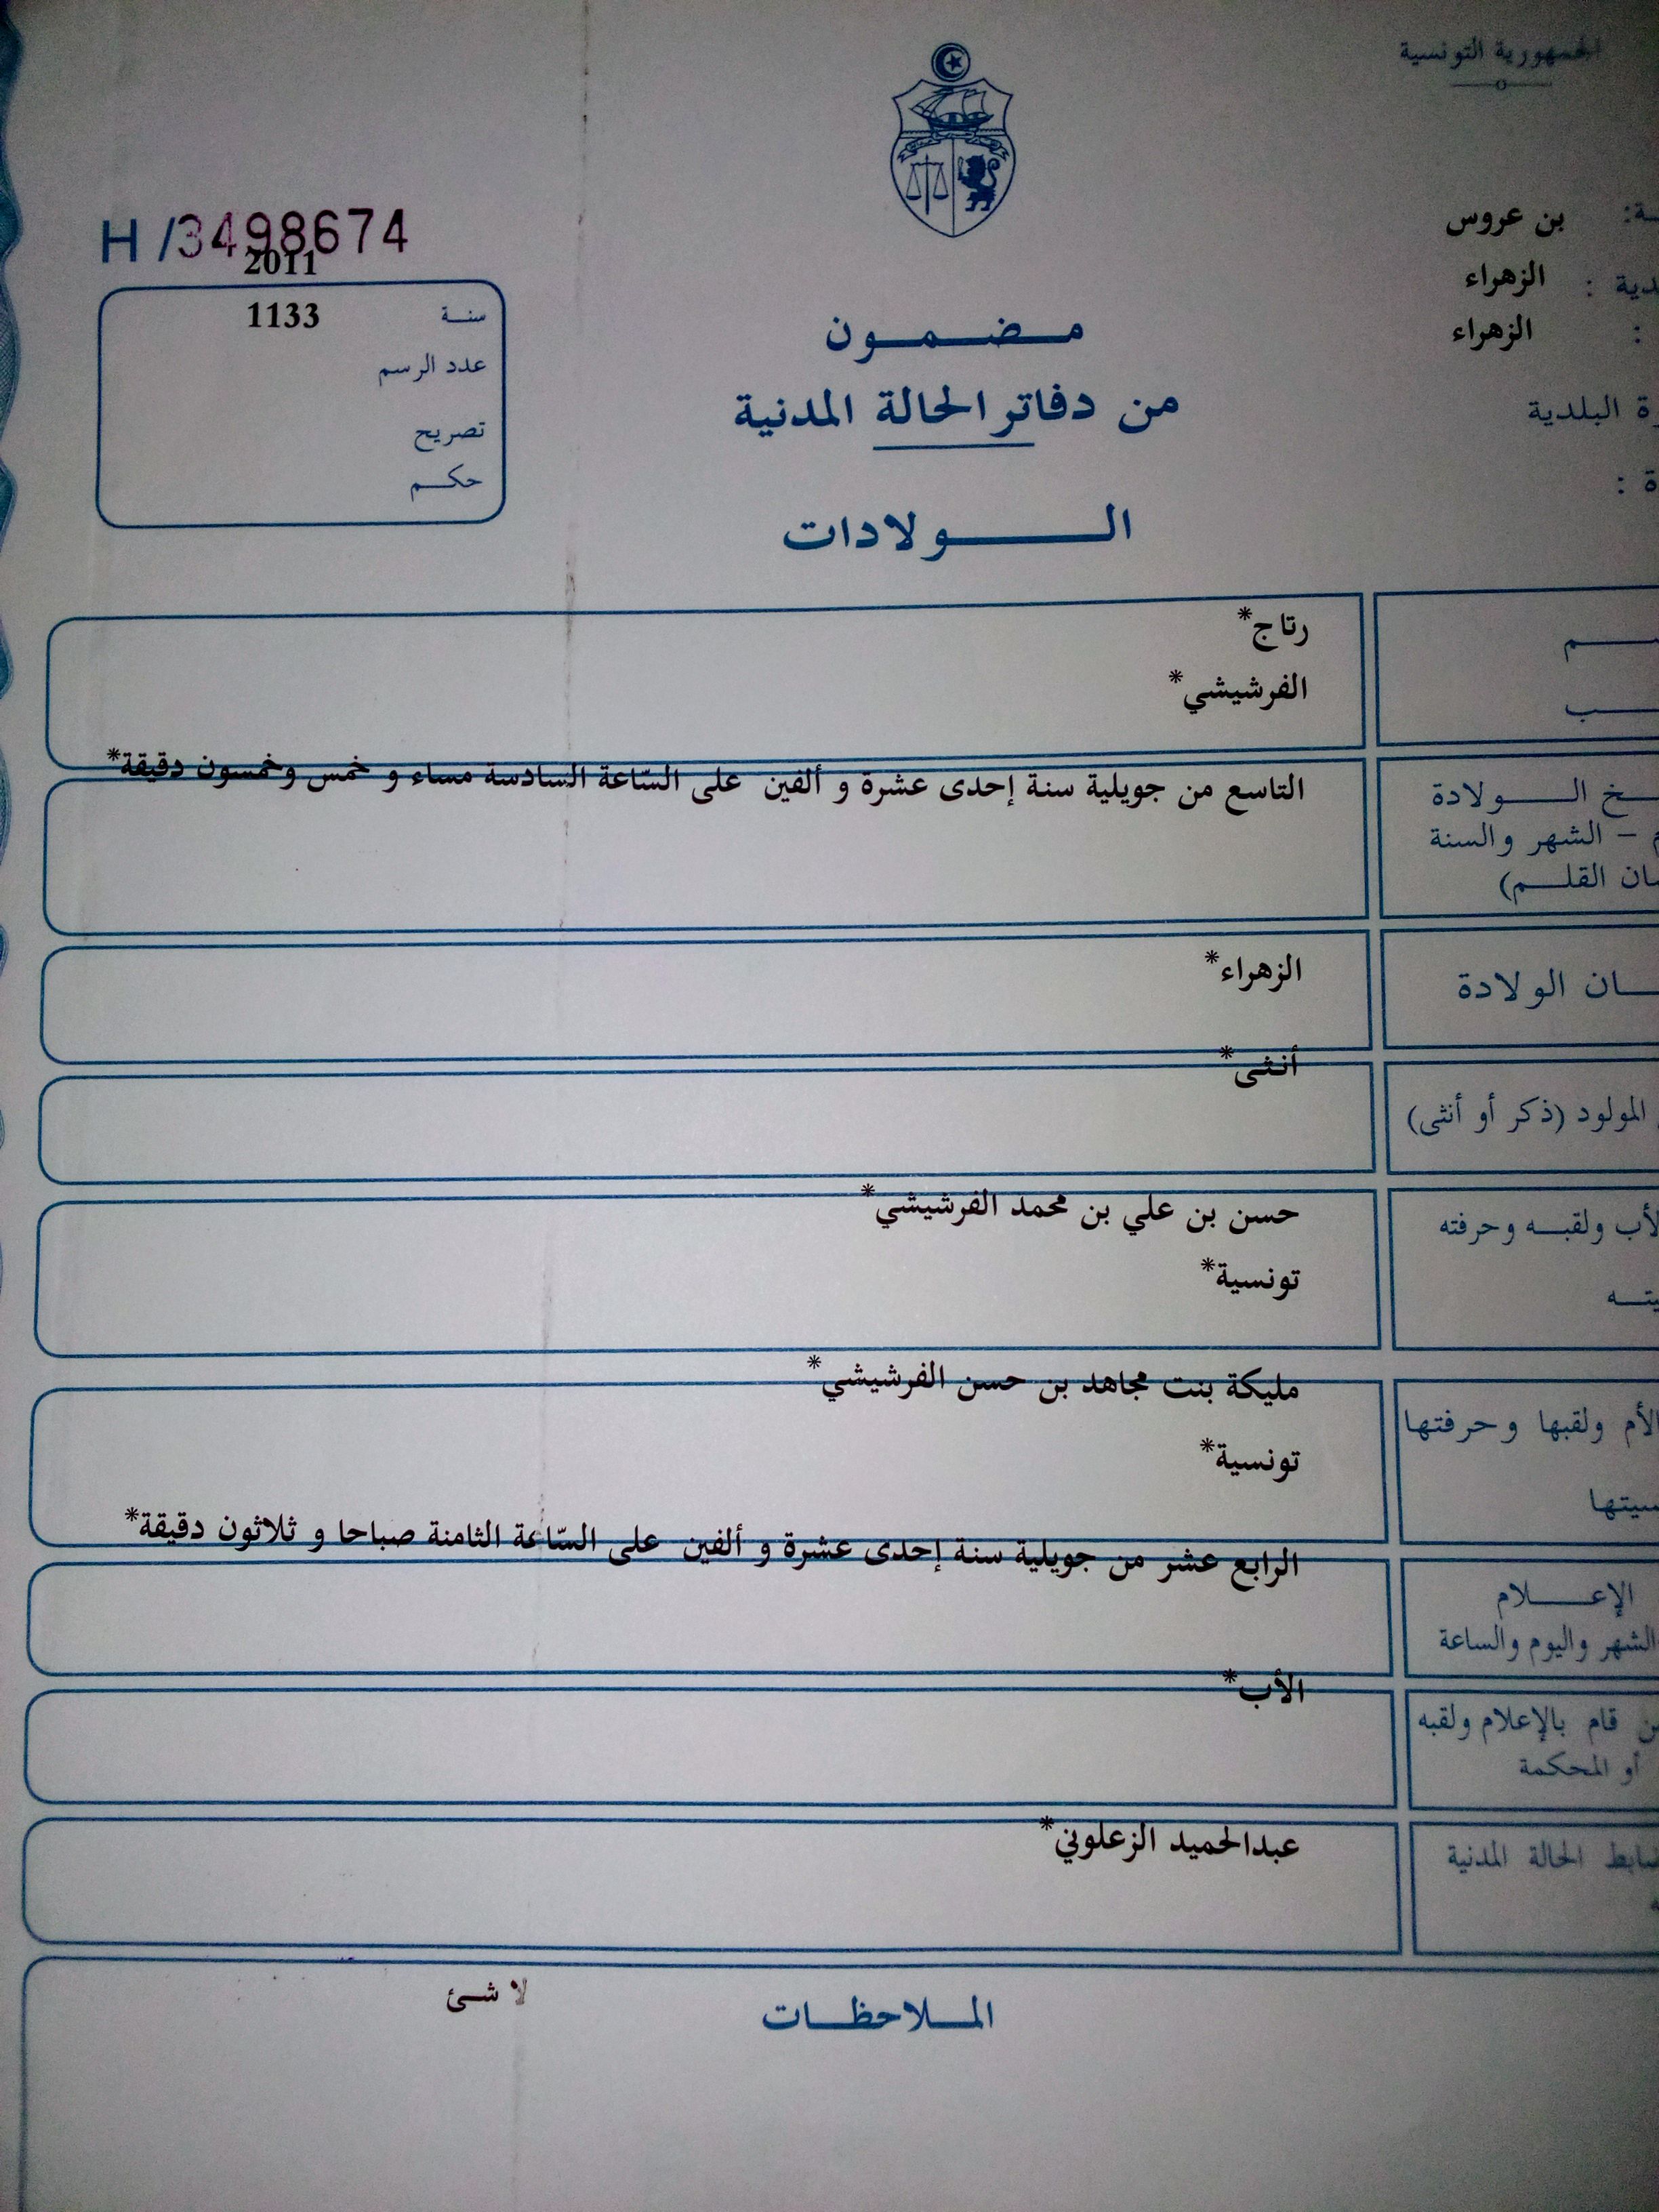 الجمهورية التونسية
بن عروس
الزهراء
الزهراء
البلدية
H /3498674
2011
سنة 1133
عدد الرسم
تصريح
حكم
مضمون
من دفاتر الحالة المدنية
الولادات
رتاج*
الفرشيشي*
التاسع من جويلية سنة إحدى عشرة و ألفين على السّاعة السادسة مساء و خمس وخمسون دقيقة*
الولادة
الشهر والسنة
القلم)
الزهراء*
الولادة
أنثى*
المولود (ذكر أو أنثى)
حسن بن علي بن محمد الفرشيشي*
ولقبه وحرفته
تونسية*
مليكة بنت مجاهد بن حسن الفرشيشي*
الأم ولقبها وحرفتها
تونسية*
الرابع عشر من جويلية سنة إحدى عشرة و ألفين على السّاعة الثامنة صباحا و ثلاثون دقيقة*
الإعلام
والشهر واليوم والساعة
الأب*
قام بالإعلام ولقبه
أو المحكمة
عبدالحميد الزعلوني*
الحالة المدنية
الملاحظات
لا شئ